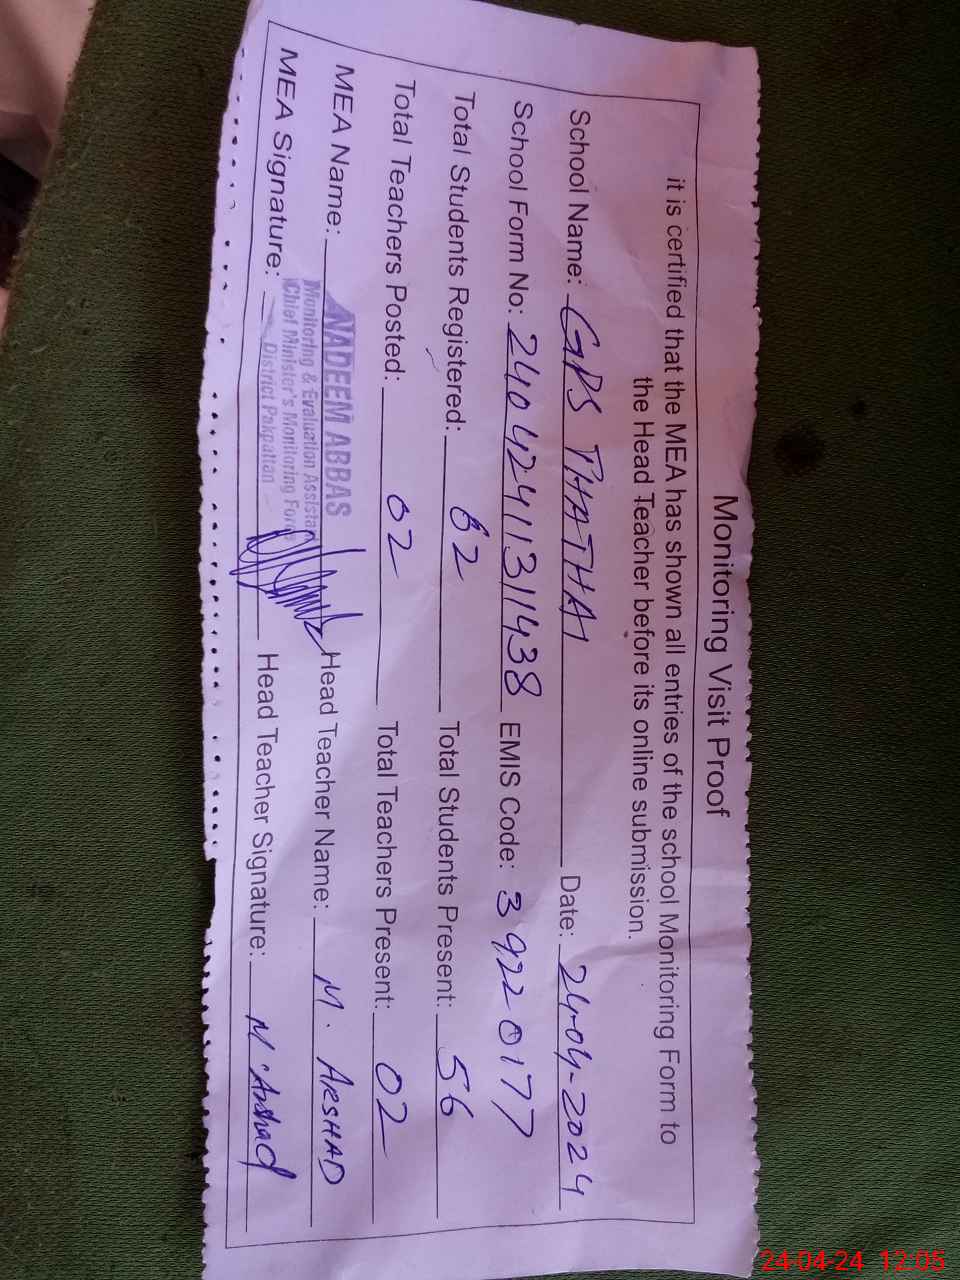 Monitoring Visit Proof
it is certified that the MEA has shown all entries of the school Monitoring Form to
the Head Teacher before its online submission.
School Name: GPS THATHAI Date: 24-04-2024
School Form No: 24042411311438 EMIS Code: 39220177
Total Students Registered: 62 Total Students Present: 56
Total Teachers Posted: 02 Total Teachers Present: 02
MEA Name: NADEEM ABBAS Head Teacher Name: M. ARSHAD
Monitoring & Evaluation Assistant
Chief Minister's Monitoring Force
District Pakpattan
MEA Signature: Head Teacher Signature: M. Arshad
24-04-24 12:05